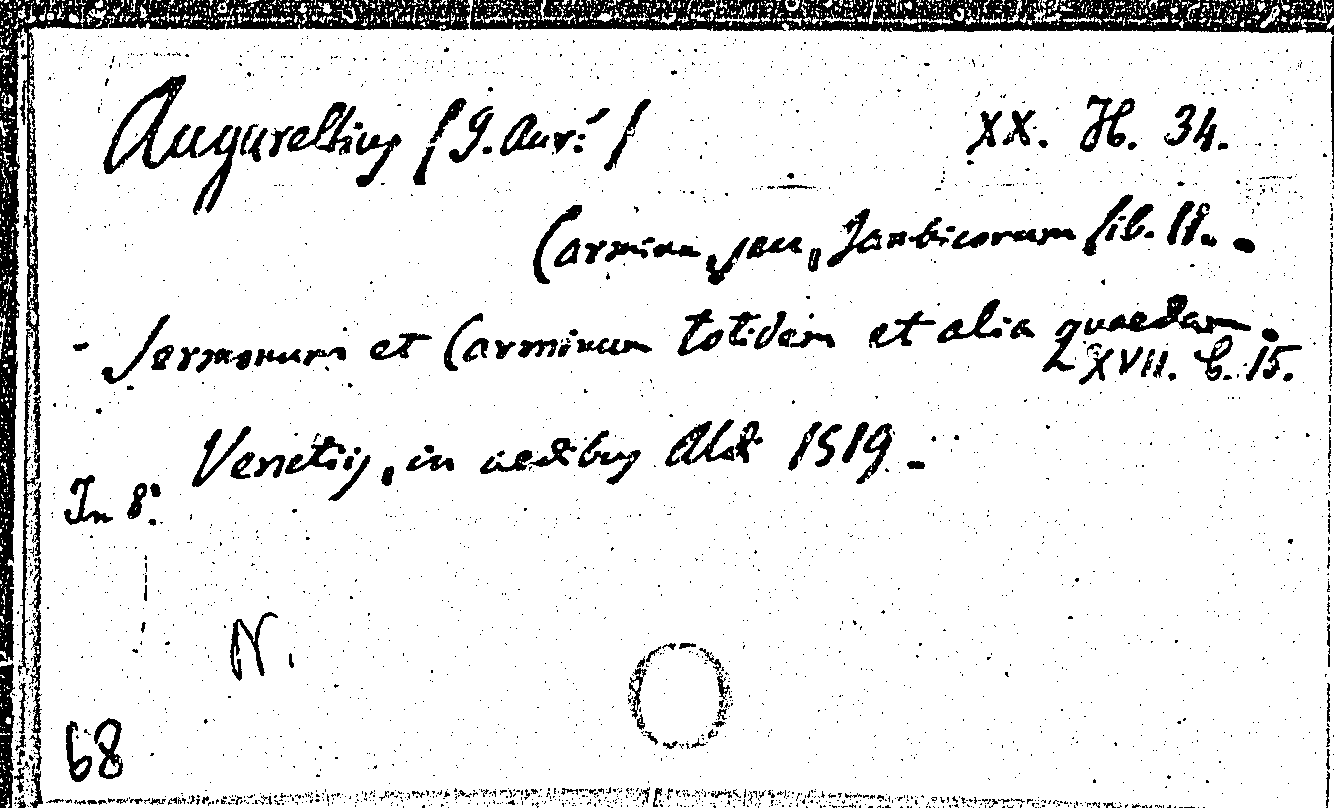 Augurellius /J. Aur:/ XX. H. 34.
Carmina, seu, Jambicorum lib. II. -
- Sermonum et Carminum totidem et alia quaedam.
LXVII. C. 15.
Venetiis, in aedibus Aldi 1519.
In 8°.
N.
68